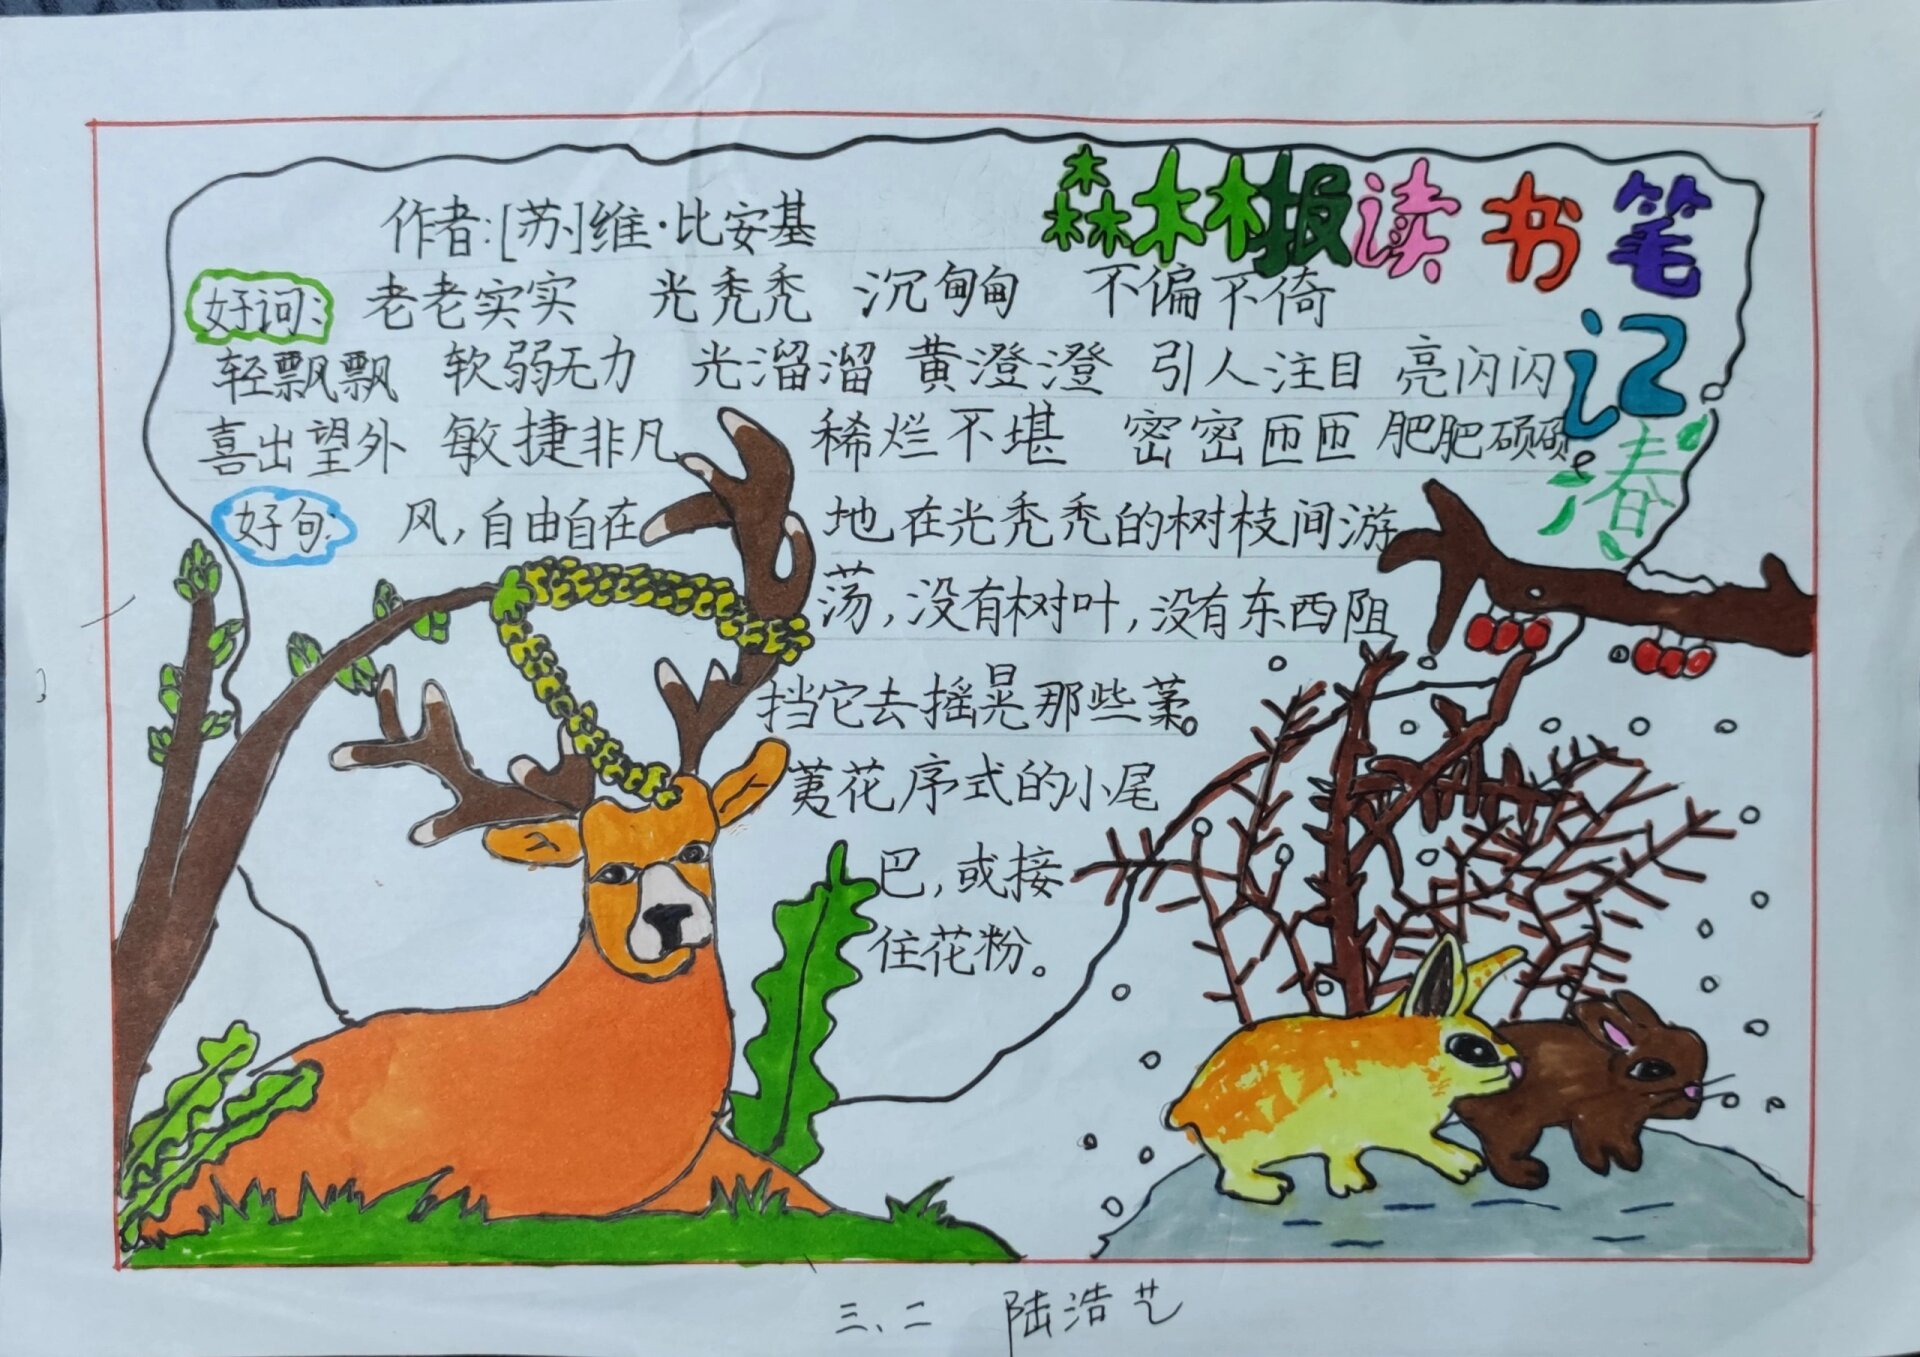 森林报读书笔记
春
作者:[苏]维·比安基
好词: 老老实实 光秃秃 沉甸甸 不偏不倚
轻飘飘 软弱无力 光溜溜 黄澄澄 引人注目 亮闪闪
喜出望外 敏捷非凡 稀烂不堪 密密匝匝 肥肥硕硕
好句: 风,自由自在地在光秃秃的树枝间游
荡,没有树叶,没有东西阻
挡它去摇晃那些葇
荑花序式的小尾
巴,或接
住花粉。
三、二 陆浩艺